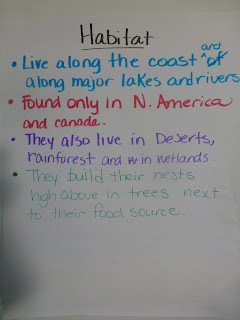 Habitat
• Live along the coast and of
along major lakes and rivers
• Found only in N. America
and canada.
• They also live in Deserts,
rainforest and in wetlands.
• They build their nests
high above in trees next
to their food source.